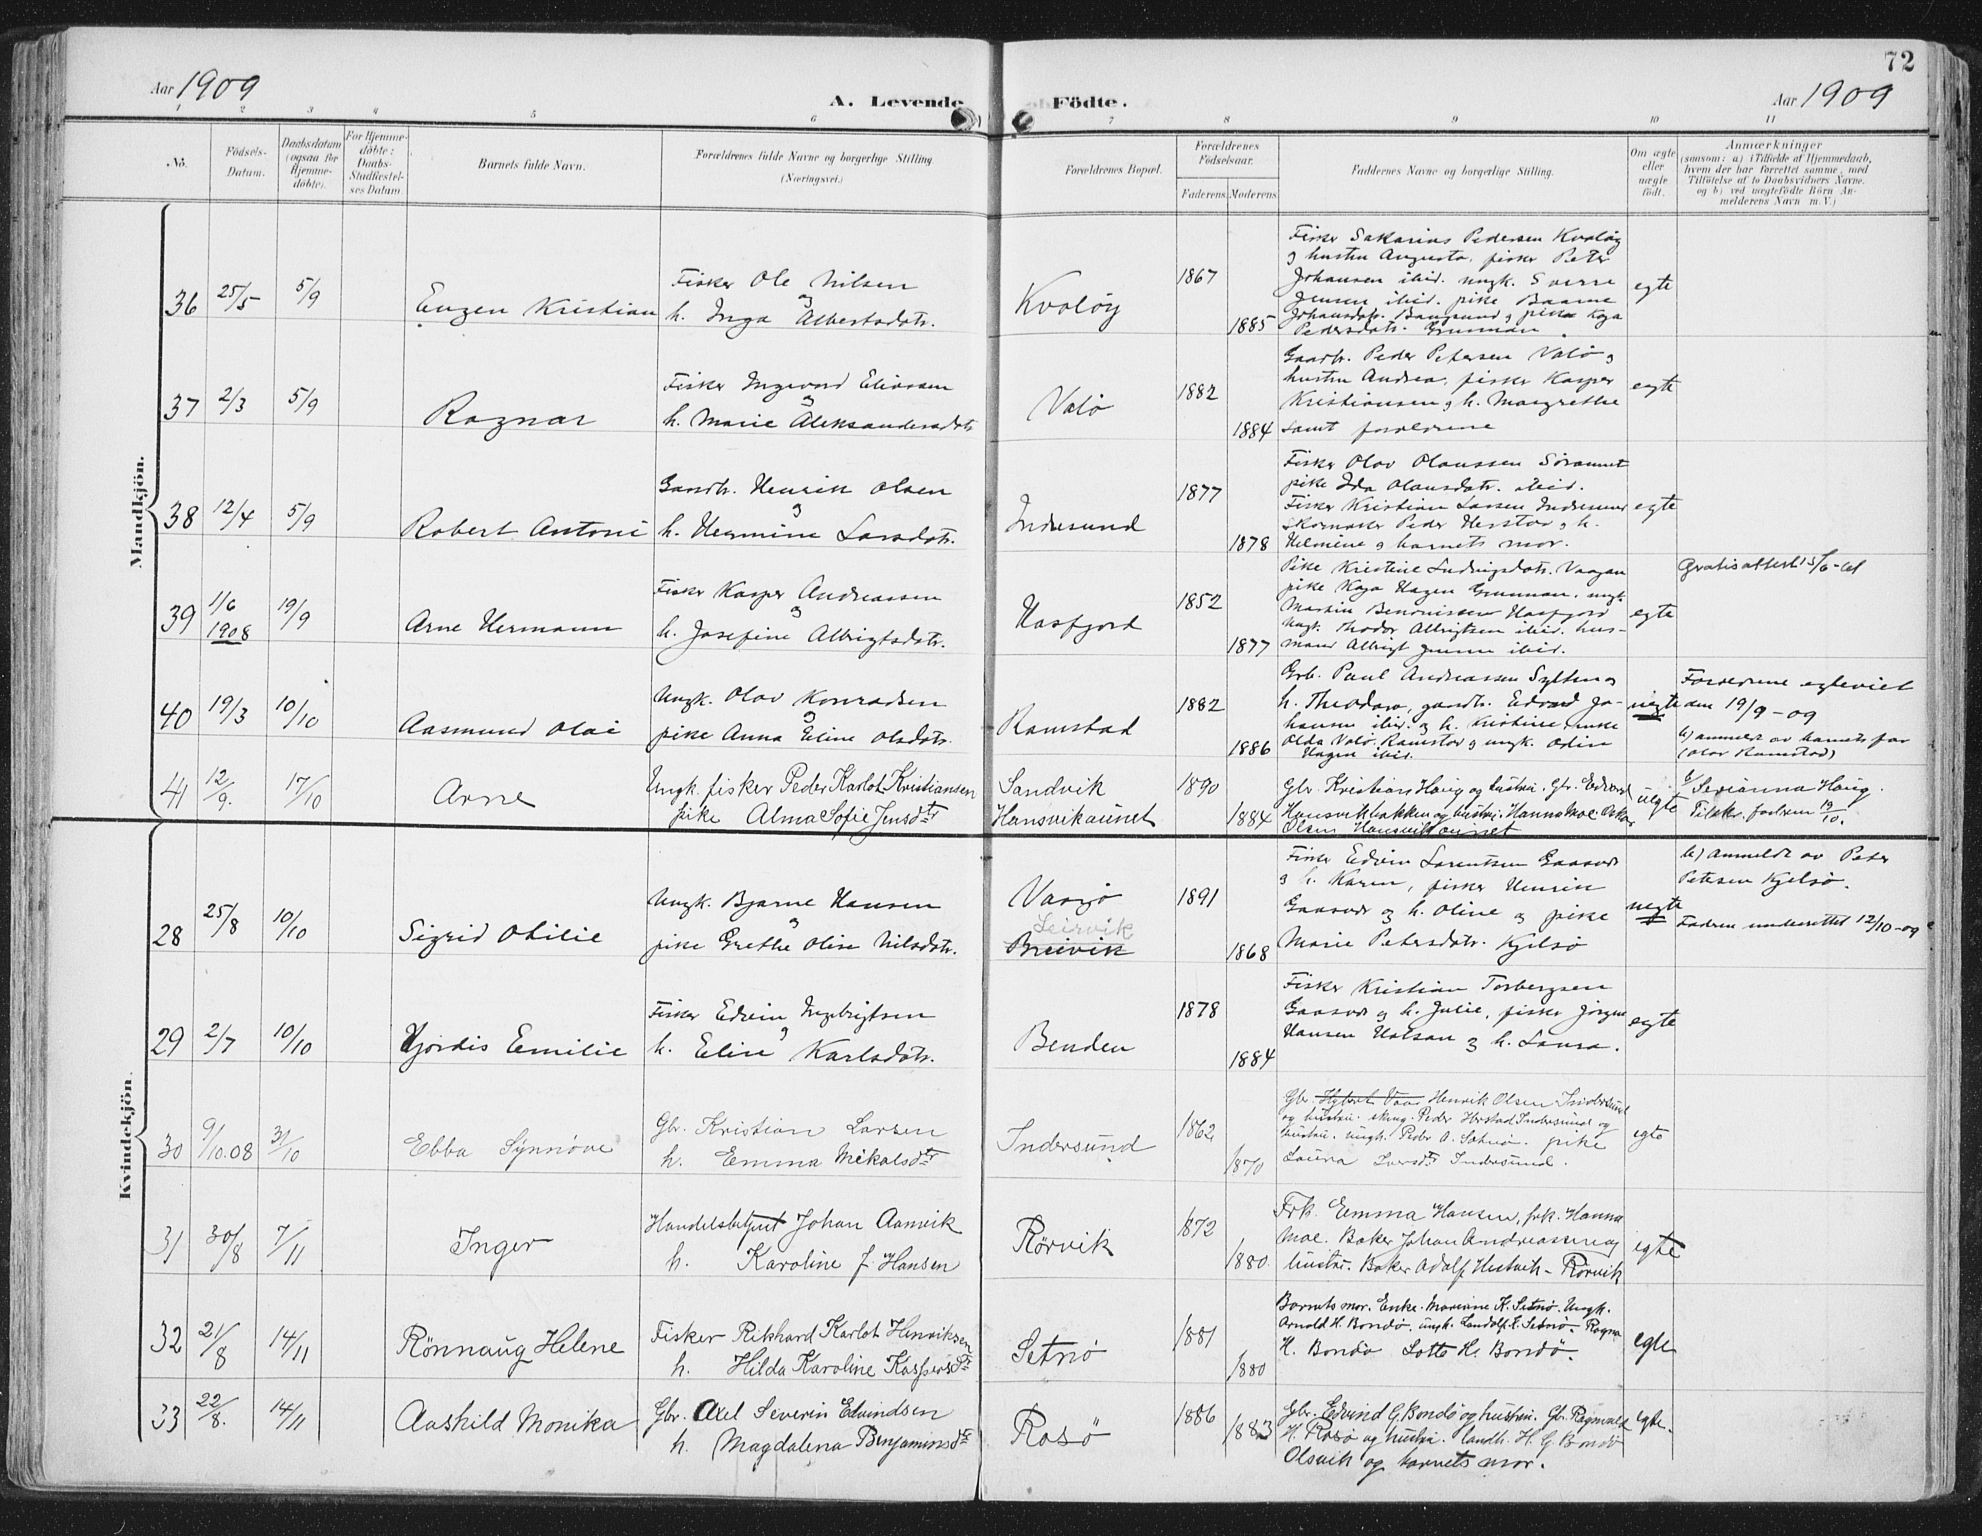 72
Aar 1909
A. Levende Födte.
Aar 1909
1 2 3 4 5 6 7 8 9 10 11
No.
Födsels-Datum.
Daabsdatum (ogsaa for Hjemmedöbte).
For Hjemmedöbte: Daabs-Stadfæstelses Datum.
Barnets fulde Navn.
Forældrenes fulde Navne og borgerlige Stilling. (Næringsvei.)
Forældrenes Bopæl.
Forældrenes Födselsaar.
Faderens Moderens
Faddernes Navne og borgerlige Stilling.
Om ægte eller uægte födt.
Anmærkninger
(saasom: a) i Tilfælde af Hjemmedaab, hvem der har forrettet samme, med Tilföielse af to Daabsvidners Navne, og b) ved uægtefödte Börn Anmelderens Navn m. V.)
Mandkjön.
36 25/5 5/9 Eugen Kristian
Fisker Ole Nilsen
og
h. Inga Albertsdatr.
Kvaløy 1867 1885
Fisker Sakarias Pedersen Kvaløy
og hustru Augusta, fisker Peter
Johansen ibid. ungk. Sverre
Jensen ibid. pike
Johansdatr. og pike Kaja
Pedersdatr.
egte
37 2/3 5/9 Ragnar
Fisker Ingvard Eliassen
og
h. Marie Aleksandersdatr.
Valø 1882 1884
Gaardb. Peder Petersen Valø og
hustru Andrea, fisker Kasper
Kristiansen og h. Margrethe
samt forældrene
egte
38 12/4 5/9 Robert Antoni
Gaardb. Henrik Olsen
og
h. Hermine Larsdatr.
Indresund 1877 1878
Fisker Olav Olaussen
pike Ida Olausdatr. ibid.
Fisker Kristian Larsen Indresund
skomaker Peder Herstad og h.
Helmine og barnets mor.
egte
39 1/6 1908 19/9 Arne Hermann
Fisker Kasper Andreassen
og
h. Josefine Albrigtsdatr.
Hasfjord 1852 1877
Pike Kristine Ludvigsdatr. Vaagan
pike Kaja Hagen ungk.
Martin Hasfjord
ungk. Thodor Albrigtsen ibid. hus-
mand Albrigt ibid.
egte
Gratisattest 15/6-
40 19/3 10/10 Aasmund Olai
Ungk. Olav Konradsen
og
pike Anna Eline Olsdatr.
Ramstad 1882 1886
Grb. Paul Andreassen
h. Theodora, gaardb. Edvard Jo-
hansen ibid. og h. Kristine, enke
Olda Valø Ramstad og ungk. Odin
Hagen ibid.
uegte
Forældrene egteviet
den 19/9-09
b) anmeldt av barnets far
(Olav Ramstad)
41 12/9. 17/10 Arne
Ungk. fisker Peder Karlot Kristiansen
pike Alma Sofie Jensdtr
Sandvik
Hansvikaunet
1890 1884
Gbr. Kristian Haug og hustru. Gbr. Edvard
Hansvikbakken og hustru. Hanna Moe. Oskar
Olsen Hansvikaunet
uegte
b/ Serianna Haug.
Tilskr. fadren 19/10.
Kvindekjön.
28 25/8 10/10 Sigrid Otilie
Ungk. Bjarne Hansen
og
pike Grethe Oline Nilsdatr.
Vaagø
Leirvik
Breivik
1891 1868
Fisker Edvin Lorentsen Gaasvær
og h. Karen, fisker Henrik
Gaasvær og h. Oline og pike
Marie Petersdatr. Kjelsø
uegte
b) Anmeldt av Peter
Petersen Kjelsø.
Fadren underrettet 12/10-09
29 2/7 10/10 Hjördis Emilie
Fisker Edvin Ingebrigtsen
og
h. Eline Karlsdatr.
Benden 1878 1884
Fisker Kristian Torbergsen
Gaasvær og h. Julie, fisker Jörgen
Hansen Halsan og h. Laura.
egte
30 9/10.08 31/10 Ebba Synnøve
Gbr. Kristian Larsen
h. Emma Mikalsdtr
Indersund 1862 1870
Gbr. Henrik Olsen Indersund
og hustru. skomg. Peder Herstad Indersund og
hustru. ungk. Peder A. Sætnø. pike
Laura Iversdtr Indersund.
egte
31 30/8 7/11 Inger
Handelsbetjent Johan Aanvik
h. Karoline f. Hansen
Rørvik 1872 1880
Frk. Emma Hansen, frk. Hanna
Moe. Baker Johan Andreassen og
hustru. Baker Adolf Hestvik - Rørvik
egte
32 21/8 14/11 Rönnaug Helene
Fisker Rikhard Karlot Henriksen
h. Hilda Karoline Kaspersdtr
Setnø 1881 1880
Barnets mor. Enke. Mariane K. Setnø. Ungk.
Arnold H. Bondø. ungk. Landolf K. Setnø. Ragna
H. Bondø Lotte H. Bondø.
egte
33 22/8. 14/11 Aashild Monika
Gbr. Axel Severin Edvindsen
h. Magdalena Benjaminsdtr
Rosø 1886 1883
Gbr. Edvind G. Bondø og hustru. Gbr. Ragnvald
H. Rosø og hustru. landh. H. G. Bondø
Olsvik og barnets mor.
egte.